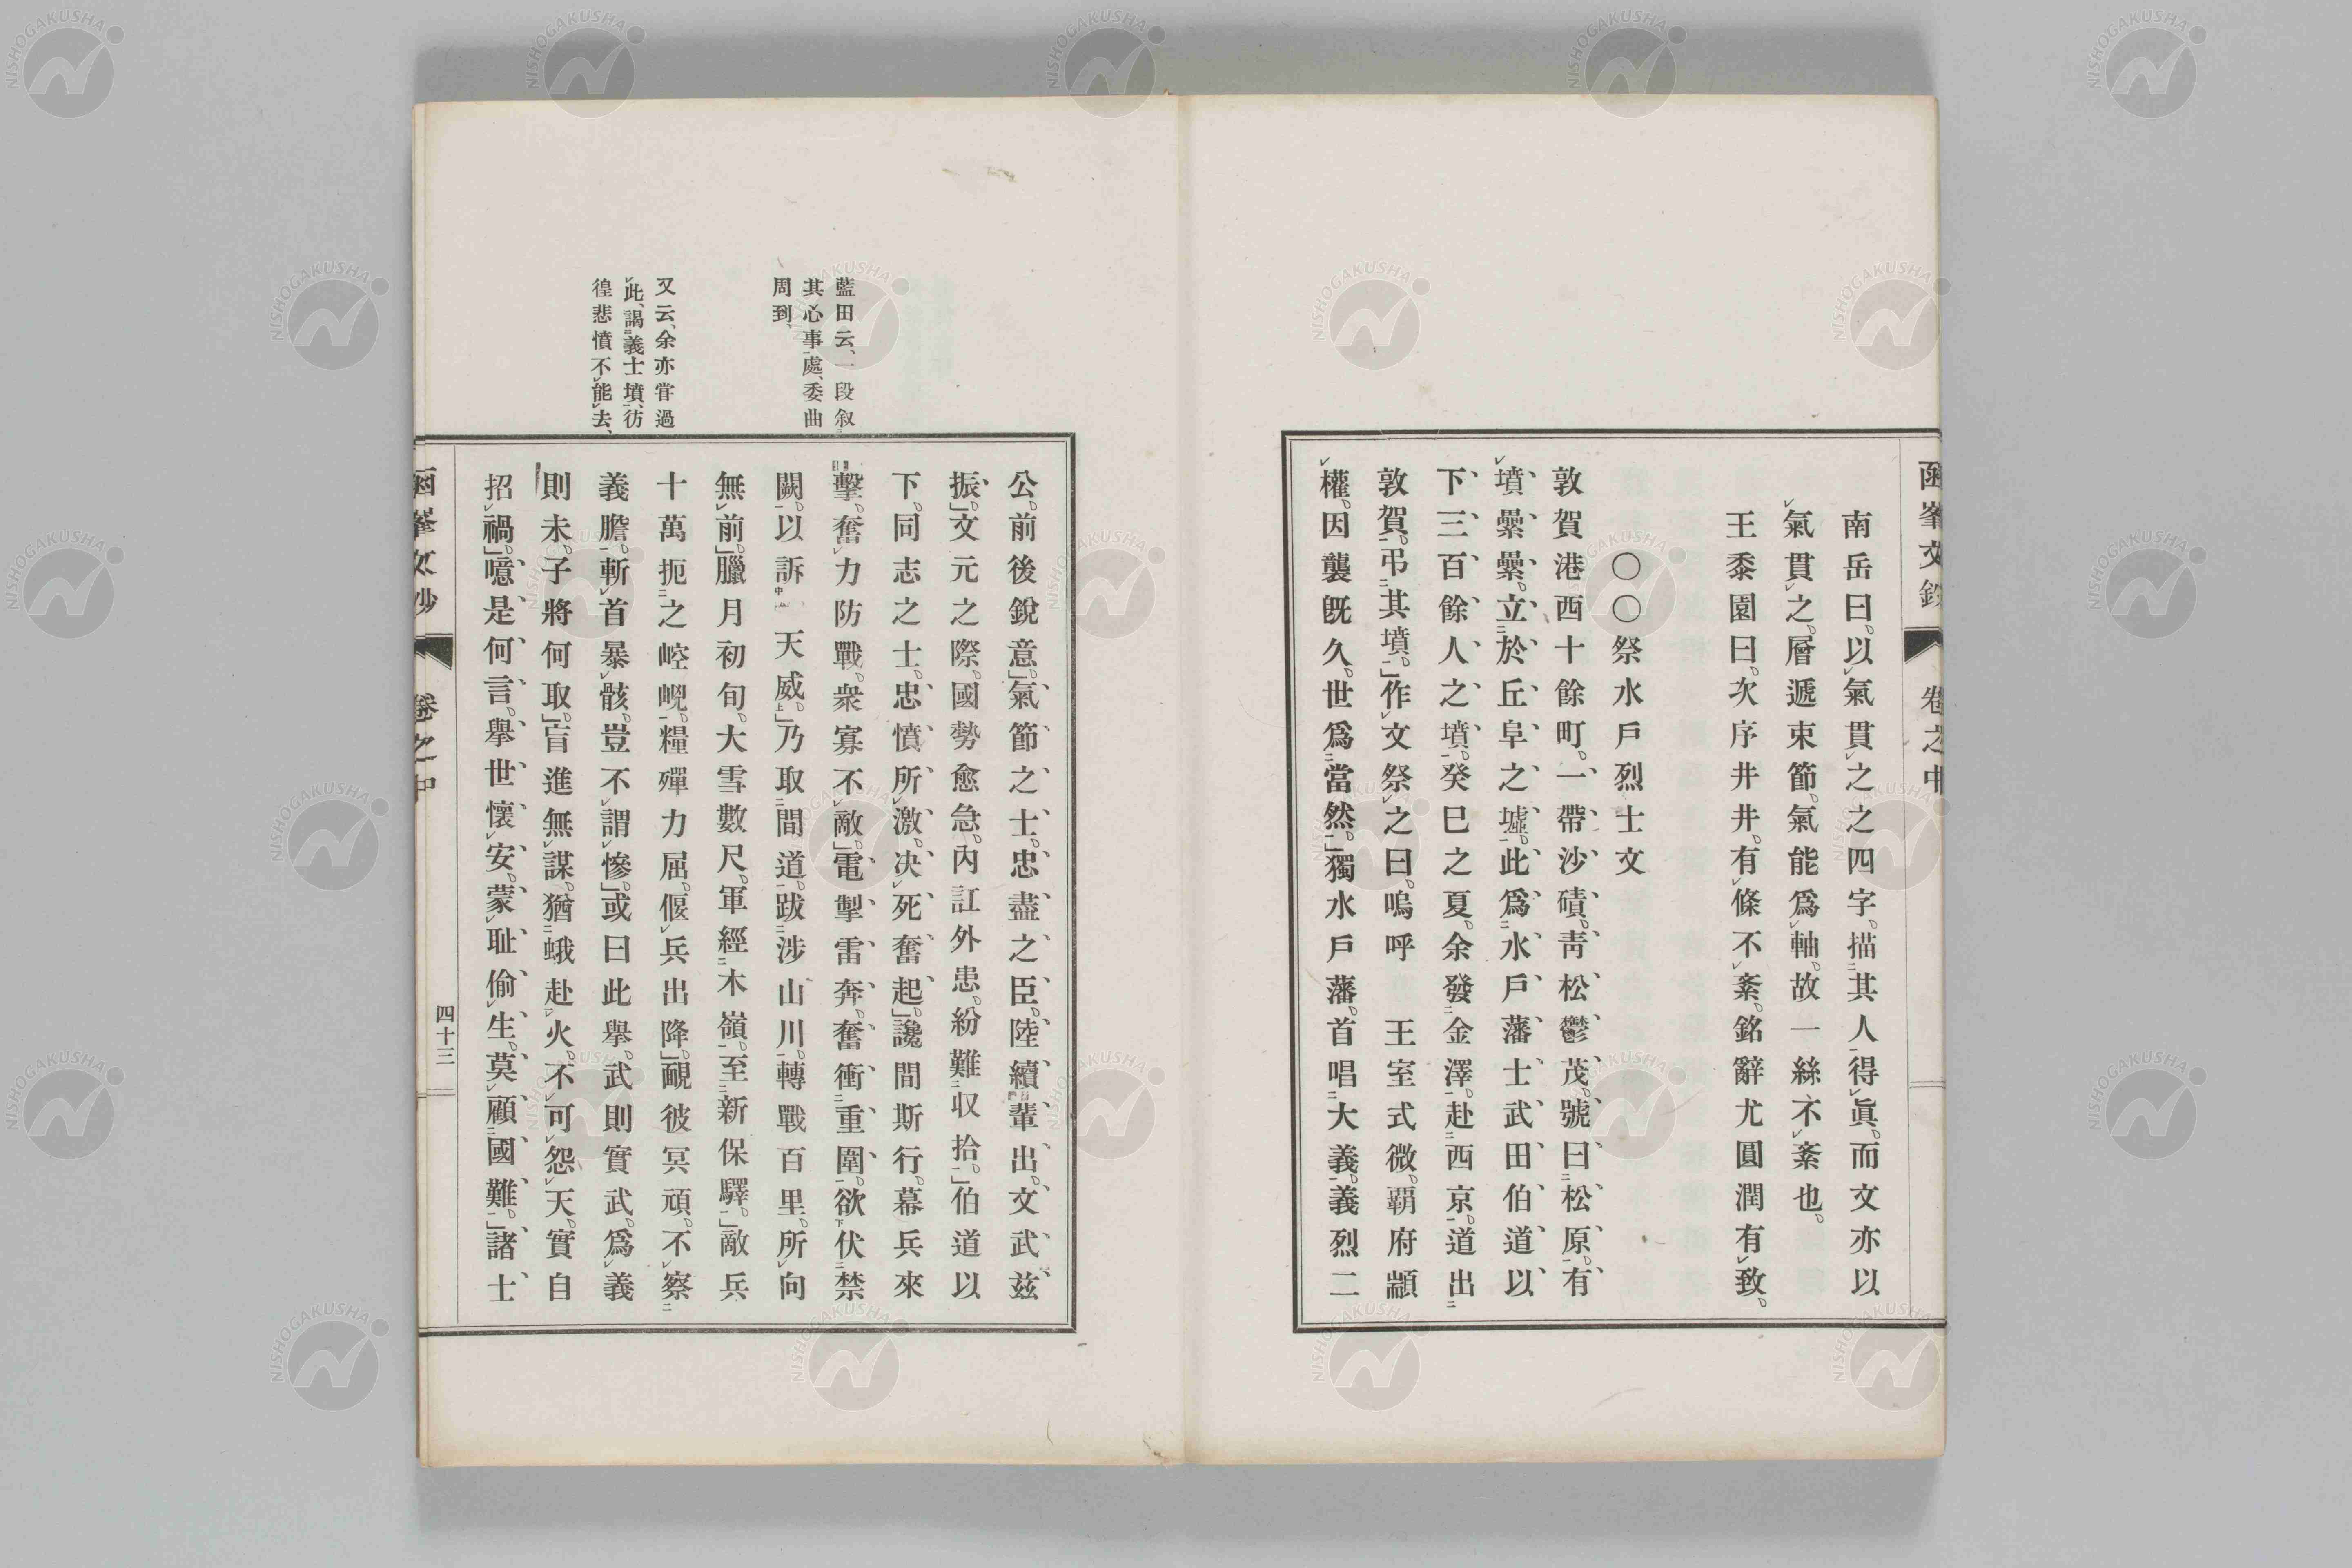 函峯文鈔
卷之中
南岳曰。以氣貫之之四字。描其人得眞。而文亦以
氣貫之。層遞束節。氣能爲軸。故一絲不紊也。
王黍園曰。次序井井。有條不紊。銘辭尤圓潤有致。
〇〇祭水戶烈士文
敦賀港西十餘町。一帶沙磧。靑松鬱茂。號曰松原。有
墳纍纍。立於丘阜之墟。此爲水戶藩士武田伯道以
下三百餘人之墳。癸巳之夏。余發金澤。赴西京。道出
敦賀。弔其墳。作文祭之曰。嗚呼　王室式微。覇府顓
權。因襲旣久。世爲當然。獨水戶藩。首唱大義。義烈二
藍田云、一段叙
其心事處、委曲
周到、
又云、余亦甞過
此、謁義士墳、彷
徨悲憤不能去、
公。前後銳意。氣節之士。忠盡之臣。陸續輩出。文武玆
振。文元之際。國勢愈急。內訌外患。紛難収拾。伯道以
下。同志之士。忠憤所激。決死奮起。讒間斯行。幕兵來
擊。奮力防戰。衆寡不敵。電掣雷奔。奮衝重圍。欲伏禁
闕。以訴　天威。乃取間道。跋涉山川。轉戰百里。所向
無前。臘月初旬。大雪數尺。軍經木嶺。至新保驛。敵兵
十萬扼之崆峴。糧殫力屈。偃兵出降。覼彼冥頑。不察
義膽。斬首暴骸。豈不謂慘。或曰此擧。武則實武。爲義
則未。子將何取。盲進無謀。猶蛾赴火。不可怨天。實自
招禍。噫是何言。擧世懷安。蒙耻偷生。莫顧國難。諸士
函峯文鈔
卷之中
四十三
NISHOGAKUSHA